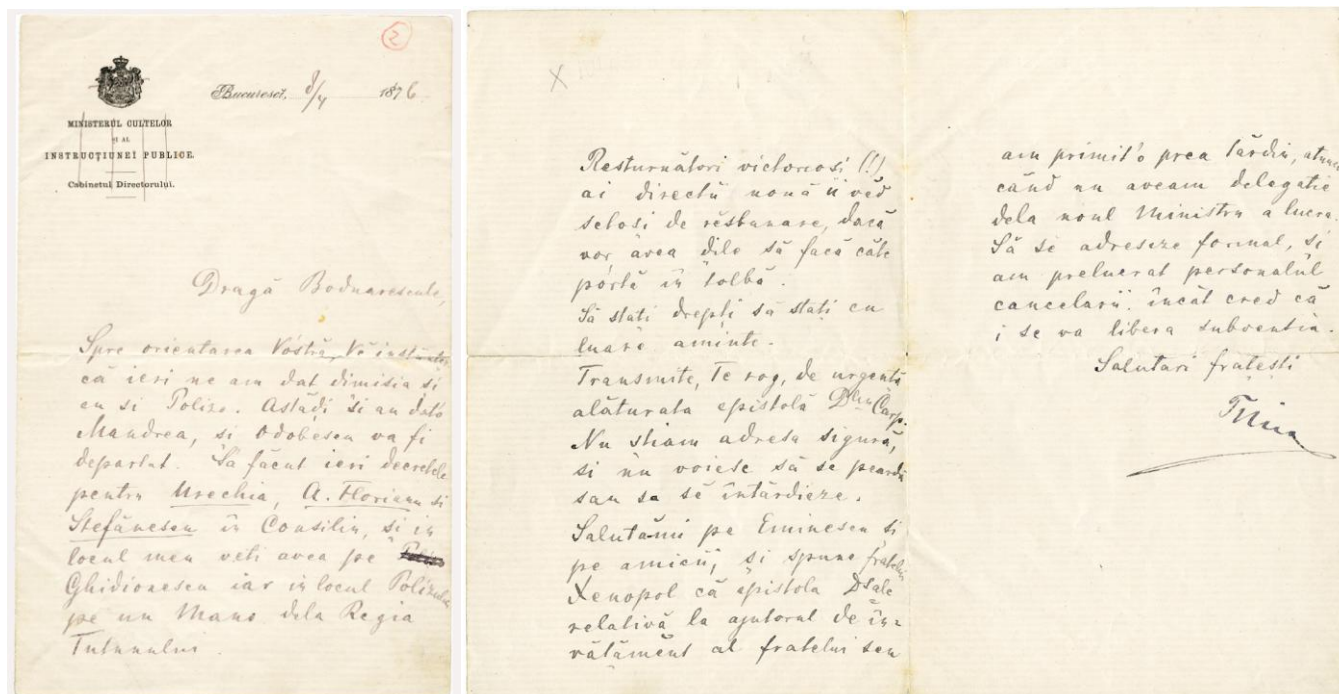 2
Bucuresci, 8/V 1876
MINISTERUL CULTELOR
ȘI AL
INSTRUCȚIUNEI PUBLICE.
Cabinetul Directorului.
Dragă Bodnarescule,
Spre orientarea Vóstră, Vĕ
că ieri ne am dat dimisia și
eu si Polizo. Astădi si au dato
Mandrea, si Odobescu va fi
departat. Sa făcut ieri decretele
pentru Urechia, A. Florianu si
Stefănescu in Consiliu, și in
locul meu veti avea pe
Ghidionescu iar in locul Polizului
pe un Manu dela Regia
Tutunului.
X
Resturnători victoriosi (!)
ai directă nouă ii ved
setosi de rĕsbunare, dacă
vor avea dile să facă câte
pórtă in tolbă.
Să stati drepti să stati cu
luare aminte.
Transmite, Te rog, de urgentă
alăturata epistolă Dlui Carp.
Nu stiam adresa sigură,
si nu voiesc să se peardă
sau sa sĕ întărdieze.
Salută-mi pe Eminescu si
pe amicii, și spune fratelui
Xenopol că epistola Dsale
relativă la ajutorul de in=
vătămĕnt al fratelui seu
am primit'o prea tărdiu, atunci
când nu aveam delegatie
dela noul Ministru a lucra.
Să se adreseze formal, si
am prelucrat personalul
cancelarii, încât cred că
i se va libera subventia.
Salutari frațesti